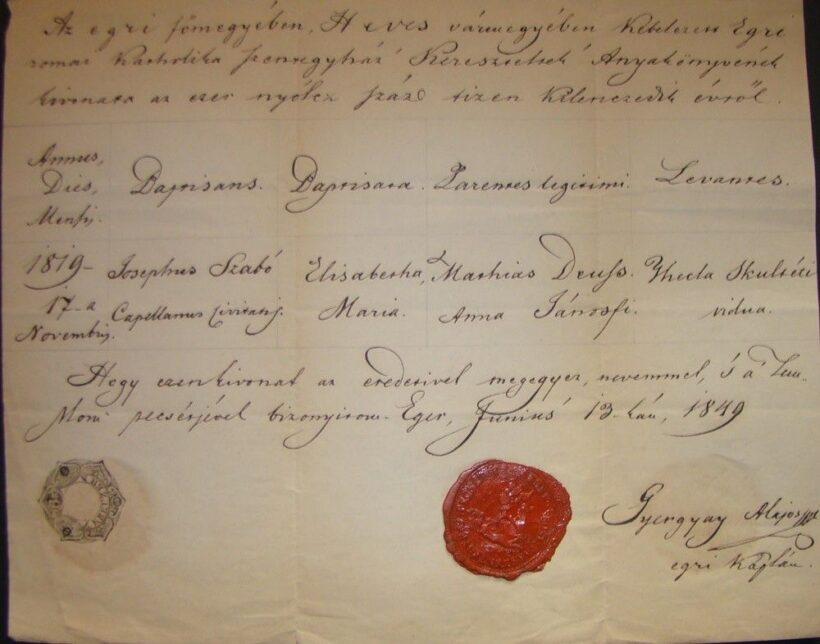 Az egri főmegyében, Heves vármegyében kebelezett Egri
romai Katholika szentegyház' Kereszteltek' Anyakönyvének
kivonata az ezer nyolcz száz tizen kilenczedik évről.
Annus,
Dies, Baptisans. Baptisata. Parentes legitimi. Levantes.
Mensis.
1819- Josephus Szabó Elisabetha, Mathias Deuss. Thecla Skultéti
17-a Capellanus civitatis. Maria. & Anna Jánosfi. vidua.
Novembris.
Hogy ezen kivonat az eredetivel megegyez, nevemmel, 's a'
pecsétjével bizonyitom. Eger, Junius' 13-kán, 1849
Gyergyay Alajos
egri káplán.